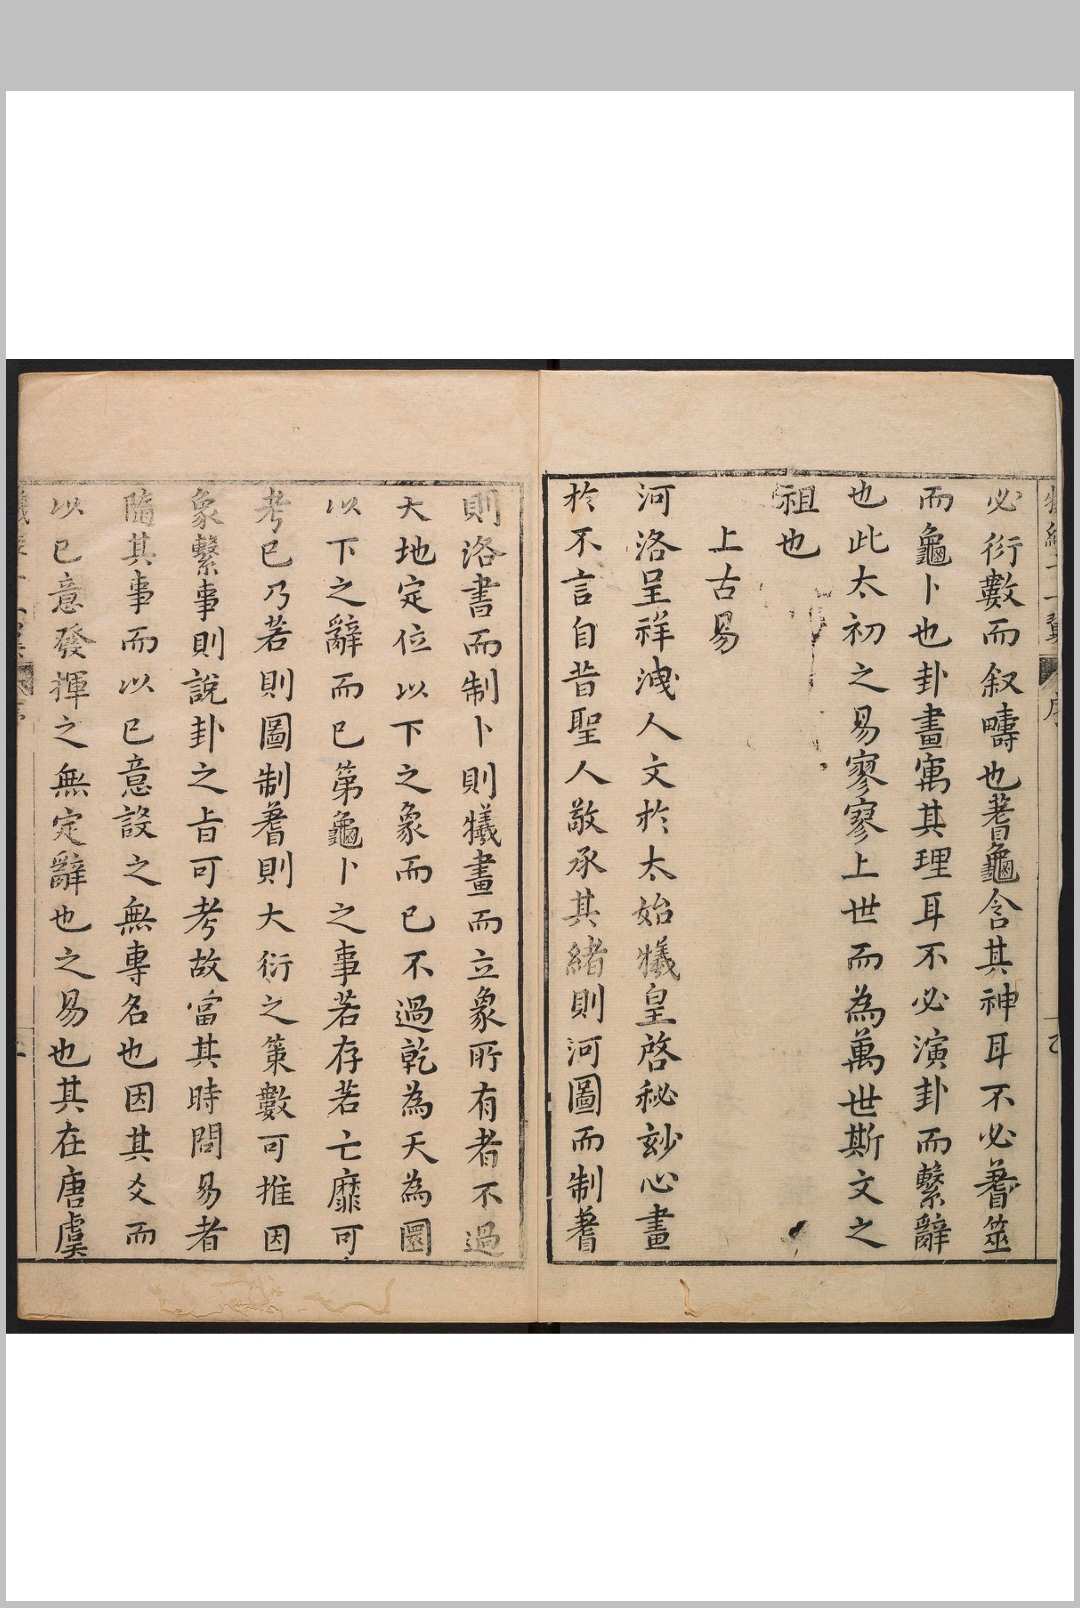 必衍數而叙疇也蓍龜含其神耳不必蓍筮
而龜卜也卦畫寓其理耳不必演卦而繫辭
也此太初之易寥寥上世而為萬世斯文之
祖也
上古易
河洛呈祥洩人文於太始犧皇啓秘玅心畫
於不言自昔聖人敬承其緒則河圖而制蓍
則洛書而制卜則犧畫而立象所有者不過
天地定位以下之象而已不過乾為天為圜
以下之辭而已第龜卜之事若存若亡靡可
考已乃若則圖制蓍則大衍之策數可推因
象繫事則說卦之旨可考故當其時問易者
隨其事而以已意設之無專名也因其爻而
以已意發揮之無定辭也之易也其在唐虞